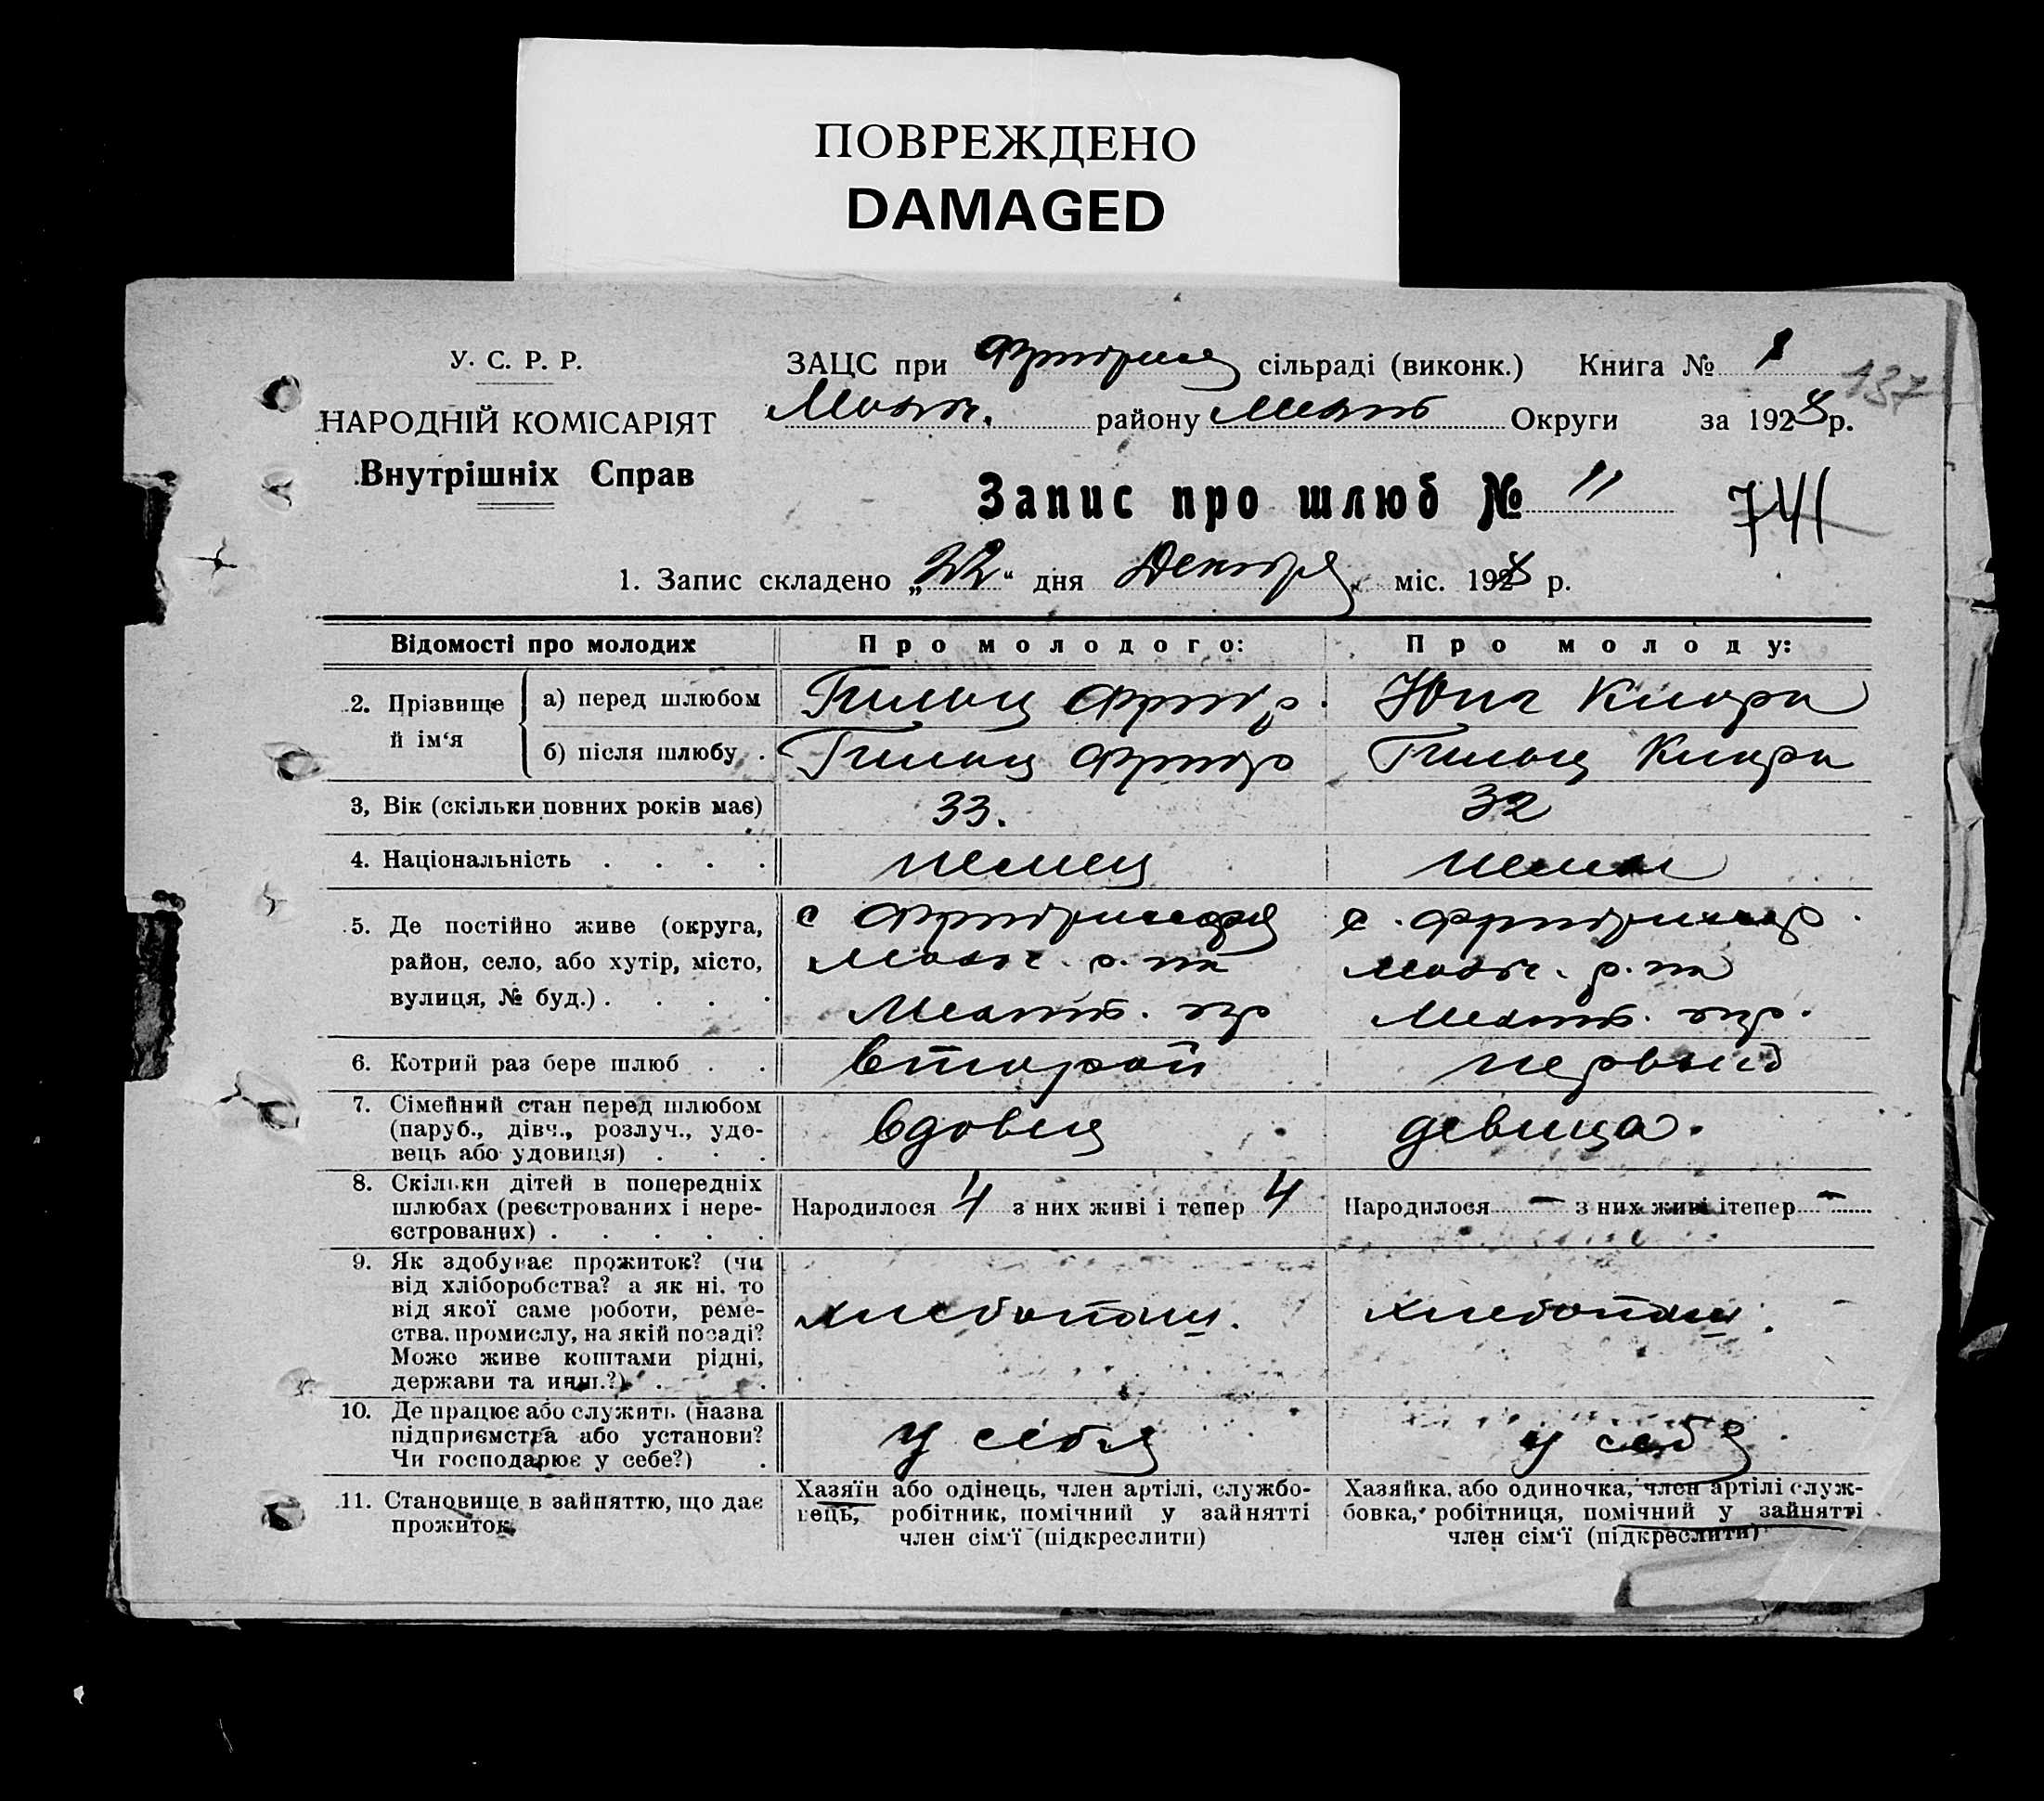 ПОВРЕЖДЕНО
DAMAGED
У. С. Р. Р.
НАРОДНІЙ КОМІСАРІЯТ
Внутрішніх Справ
ЗАЦС при сільраді (виконк.) Книга № 1
137
району Округи за 1928 р.
Запис про шлюб № 11
741
1. Запис складено „22“ дня Декабря міс. 1928 р.
Відомості про молодих Про молодого: Про молоду:
2. Прізвище й ім‘я
а) перед шлюбом Гильц Фридр. Юнг Клара
б) після шлюбу . Гильц Фридр Гильц Клара
3, Вік (скільки повних років має) 33. 32
4. Національність . . . . немец немк
5. Де постійно живе (округа, с с.
район, село, або хутір, місто, р. на р. на
вулиця, № буд.) . . . . окр окр.
6. Котрий раз бере шлюб . . второй первый
7. Сімейний стан перед шлюбом
(паруб., дівч., розлуч., удо-
вець або удовиця) . . . вдовец девица.
8. Скільки дітей в попередніх
шлюбах (реєстрованих і нере-
єстрованих) . . . . .
Народилося 4 з них живі і тепер 4 Народилося – з них живі ітепер –
9. Як здобуває прожиток? (чи
від хліборобства? а як ні. то
від якої саме роботи, реме-
ства. промислу, на якій посаді?
Може живе коштами рідні,
держави та инш.?) . .
хлебопаш. хлебопаш.
10. Де працює або служить (назва
підприємства або установи?
Чи господарює у себе?) .
у себя у себя
11. Становище в зайняттю, що дає
прожиток
Хазяїн або одінець, член артілі, службо-
вець, робітник, помічний у зайнятті
член сім‘ї (підкреслити)
Хазяйка, або одиночка, член артілі служ-
бовка, робітниця, помічний у зайнятті
член сім‘ї (підкреслити)